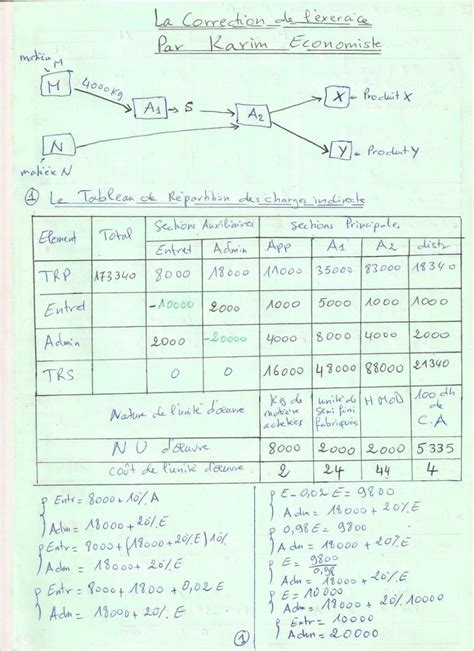 La Correction de l'éxercice
Par Karim Economiste
matière M
M 4000 Kg A1 → S A2 X ← Produit X
N Y ← Produit Y
matière N
① Le Tableau de Répartition des charges indirecte
Element Total Sections Auxiliaires Sections Principales
Entret Admin App A1 A2 distr
TRP 173340 8000 18000 11000 35000 83000 18340
Entret -10000 2000 1000 5000 1000 1000
Admin 2000 -20000 4000 8000 4000 2000
TRS 0 0 16000 48000 88000 21340
Nature de l'unité d'œuvre Kg de matière achetées unité de semi fini fabriquées H MOD 100 dh de C.A
N U d'œuvre 8000 2000 2000 5335
coût de l'unité d'œuvre 2 24 44 4
Entr = 8000 + 10% A
Adm = 18000 + 20% E
Entr = 8000 + (18000 + 20% E) 10%
Adm = 18000 + 20% E
Entr = 8000 + 1800 + 0,02 E
Adm = 18000 + 20% E
E - 0,02 E = 9800
Adm = 18000 + 20% E
0,98 E = 9800
Adm = 18000 + 20% E
E = 9800/0,98
Adm = 18000 + 20% E
E = 10000
Adm = 18000 + 20% 10000
Entr = 10000
Adm = 20000
①